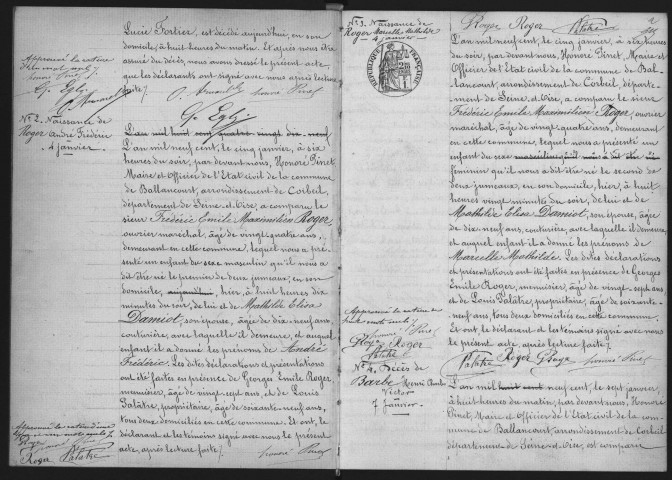 Lucie Fortier, est décédé aujourd'hui, en son
domicile, à huit heures du matin. Et après nous être
assuré du décès, nous avons dressé le présent acte,
que les déclarants ont signé avec nous après lecture
faite /.
Honoré Pinet
G. Egly
Approuvé la rature
d'un mot nul /.
honoré Pinet
G. Egly
No 2. Naissance de
Roger André Frédéric
4 janvier
L'an mil huit cent quatre vingt dix neuf
L'an mil neuf cent, le cinq janvier, à six
heures du soir, par devant nous, Honoré Pinet,
Maire et Officier de l'Etat civil de la commune
de Ballancourt, arrondissement de Corbeil,
département de Seine-et-Oise, a comparu le
sieur Frédéric Emile Maximilien Roger,
ouvrier maréchal, âgé de vingt-quatre ans,
demeurant en cette commune, lequel nous a pré-
senté un enfant du sexe masculin qu'il nous a
dit être né le premier de deux jumeaux, en son
domicile, hier, à huit heures dix
minutes du soir, de lui et de Mathilde Elisa
Damiot, son épouse, âgée de dix-neuf ans,
couturière, avec laquelle il demeure, et auquel
enfant il a donné les prénoms de André
Frédéric. Les dites déclarations et présentations
ont été faites en présence de Georges Emile Roger,
menuisier, âgé de vingt-sept ans, et de Louis
Patatre, propriétaire, âgé de soixante-neuf ans,
tous deux domiciliés en cette commune. Et ont, le
déclarant et les témoins signé avec nous le présent
acte, après lecture faite /.
honoré Pinet
Roger Patatre
No 3. Naissance de
Roger Marcelle Mathilde
4 janvier
RÉPUBLIQUE FRANÇAISE
Roger Roger Patatre
L'an mil neuf cent, le cinq janvier, à six heures du
soir, par devant nous, Honoré Pinet, Maire et
Officier de l'Etat civil de la commune de Bal-
lancourt, arrondissement de Corbeil, départe-
ment de Seine-et-Oise, a comparu le sieur
Frédéric Emile Maximilien Roger, ouvrier
maréchal, âgé de vingt-quatre ans, demeurant
en cette commune, lequel nous a présenté un
enfant du sexe
féminin qu'il nous a dit être né le second de
deux jumeaux, en son domicile, hier, à huit
heures vingt minutes du soir, de lui et de
Mathilde Elisa Damiot, son épouse, âgée
de dix-neuf ans, couturière, avec laquelle il demeure,
et auquel enfant il a donné les prénoms de
Marcelle Mathilde. Les dites déclarations
et présentations ont été faites en présence de Georges
Emile Roger, menuisier, âgé de vingt-sept ans
et de Louis Patatre, propriétaire, âgé de soixante-
neuf ans, tous deux domiciliés en cette commune.
Et ont, le déclarant et les témoins signé avec nous le
présent acte, après lecture faite /.
Patatre Roger Roger honoré Pinet
Approuvé la rature de
honoré Pinet
Roger Roger
Patatre
No 4. Décès de
Barbe Henri Charles
Victor
7 janvier
L'an mil huit cent neuf cent, le sept janvier,
à huit heures du matin, par devant nous, Honoré
Pinet, Maire et Officier de l'Etat civil de la com-
mune de Ballancourt, arrondissement de Corbeil
département de Seine-et-Oise, est comparu